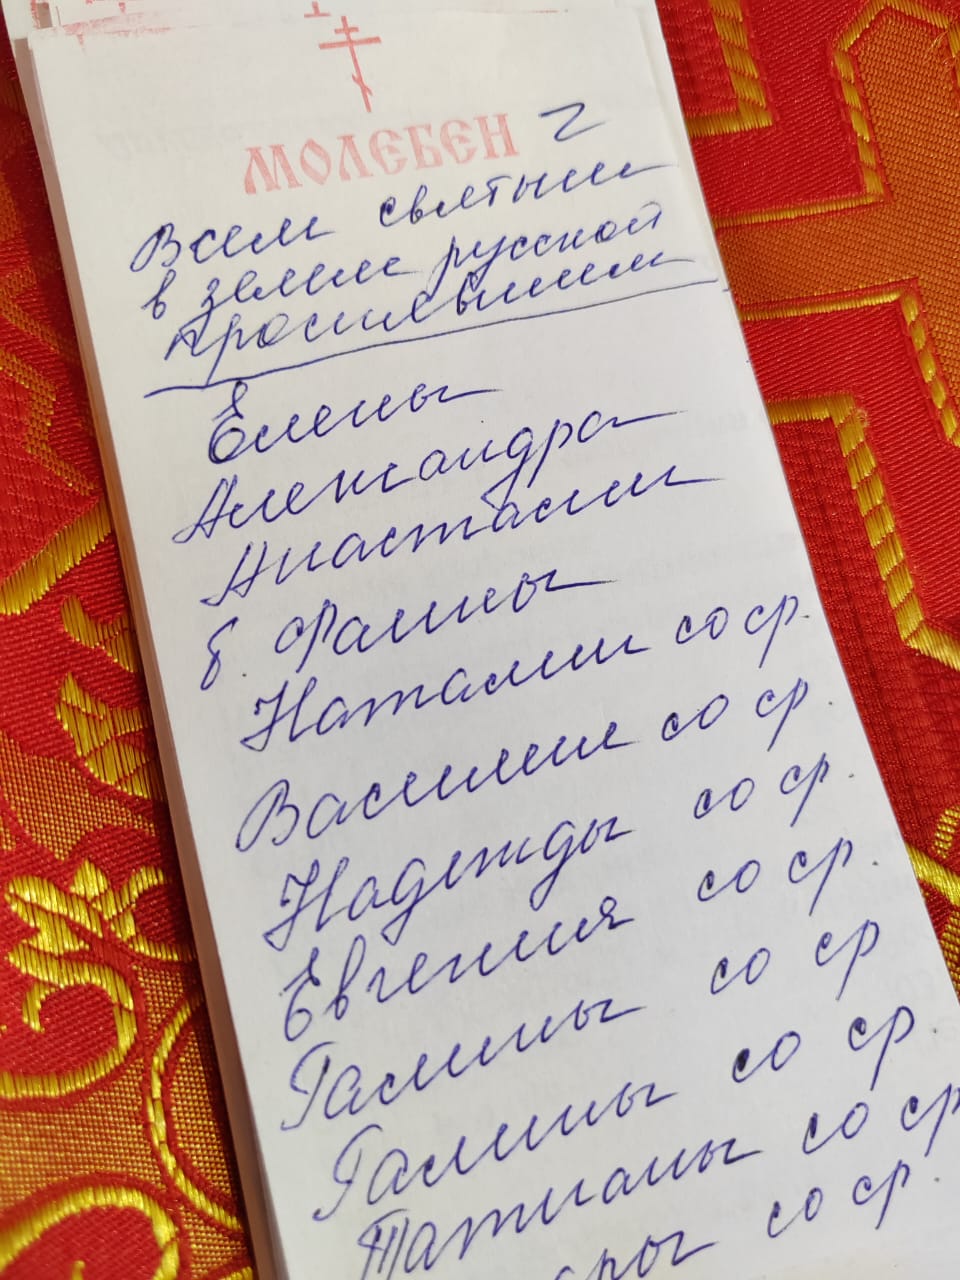 МОЛЕБЕН
Всем святым
в земле русской
просиявшим
Елены
Александра
Анастасии
б. Фаины
Наталии со ср.
Василия со ср.
Надежды со ср.
Евгения со ср.
Галины со ср
Галины со ср.
Татианы со ср
со ср.